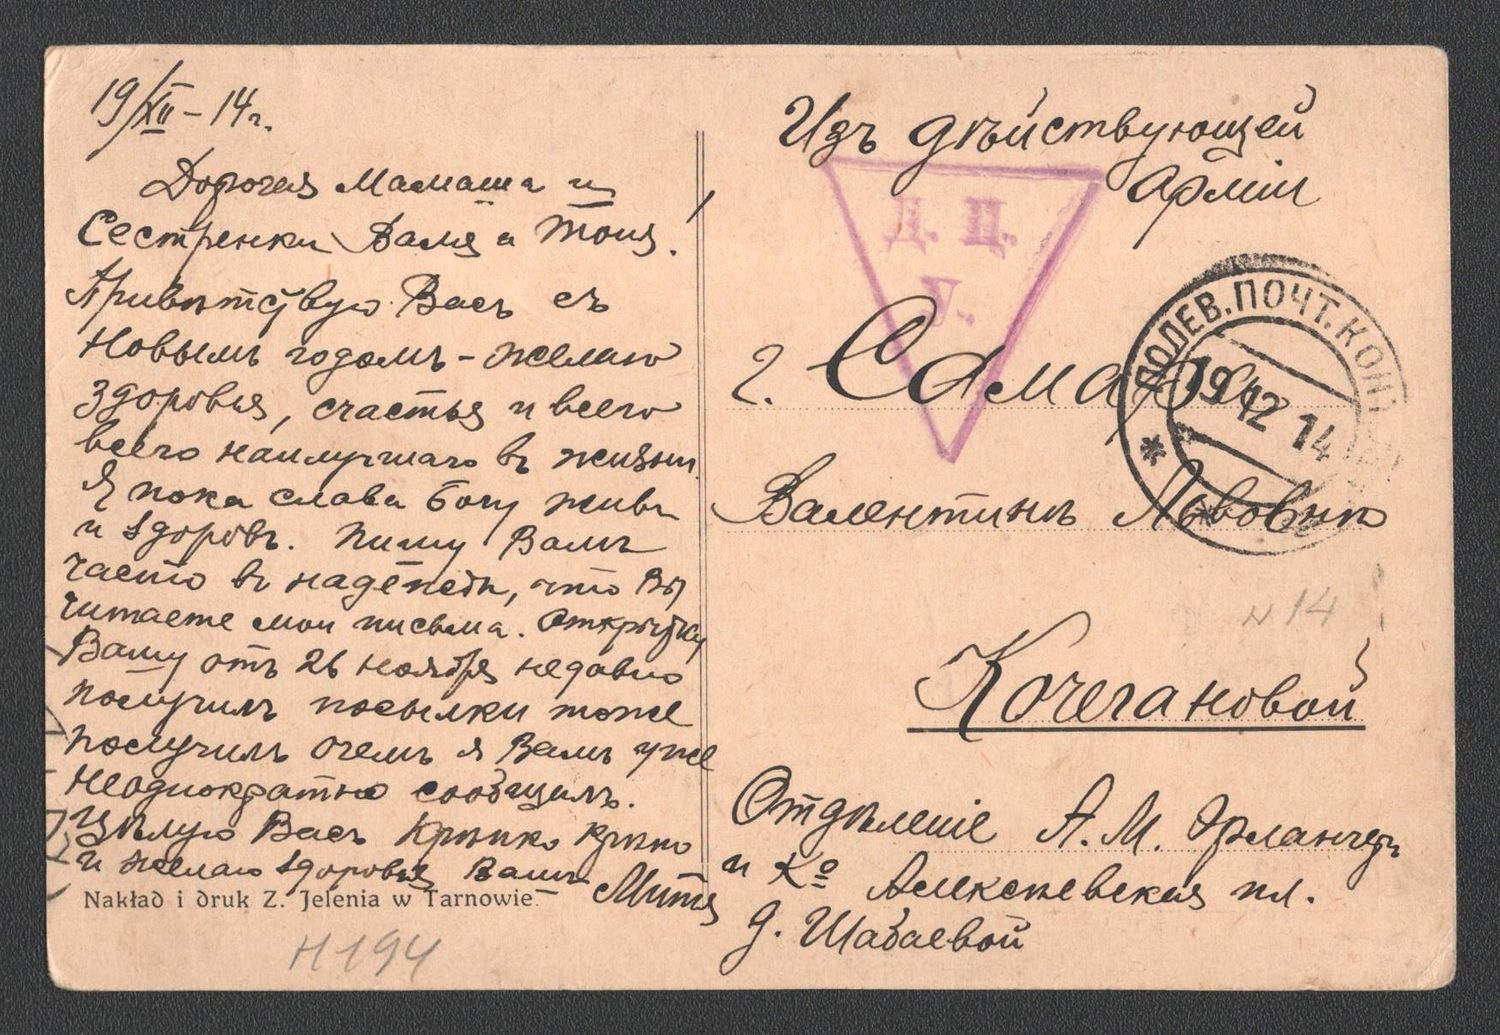 19/XII – 14 г.
Дорогая Мамаша и
Сестренки Валя и Тоня!
Привѣтствую Васъ съ
Новымъ годомъ – желаю
здоровья, счастья и всего
всего наилучшаго въ жизни.
Я пока слава Богу живъ
и здоровъ. Пишу Вамъ
часто въ надеждѣ, что Вы
читаете мои письма. Открытку
Вашу отъ 26 ноября недавно
получилъ посылки тоже
получилъ о чемъ я Вамъ уже
неоднократно сообщилъ.
Цѣлую Васъ крѣпко крѣпко
и желаю здоровья Вамъ
Митя
Nakład i druk Z. Jelenia w Tarnowie.
Н 194
Изъ дѣйствующей
Арміи
Д. Ц.
У.
г. Самара
ПОЛЕВ. ПОЧТ. КОНТ
19 12 14
Валентинѣ Львовнѣ
N 14
Кочегановой
Отдѣленіе А. М. Эрлангеръ
и Ко Алексѣевская пл.
д. Шабаевой